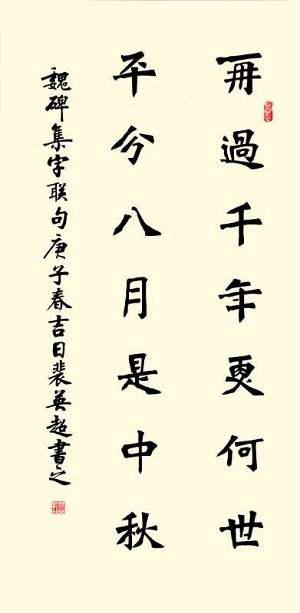 再過千年更何世
平分八月是中秋
魏碑集字联句庚子春吉日裴英超書之